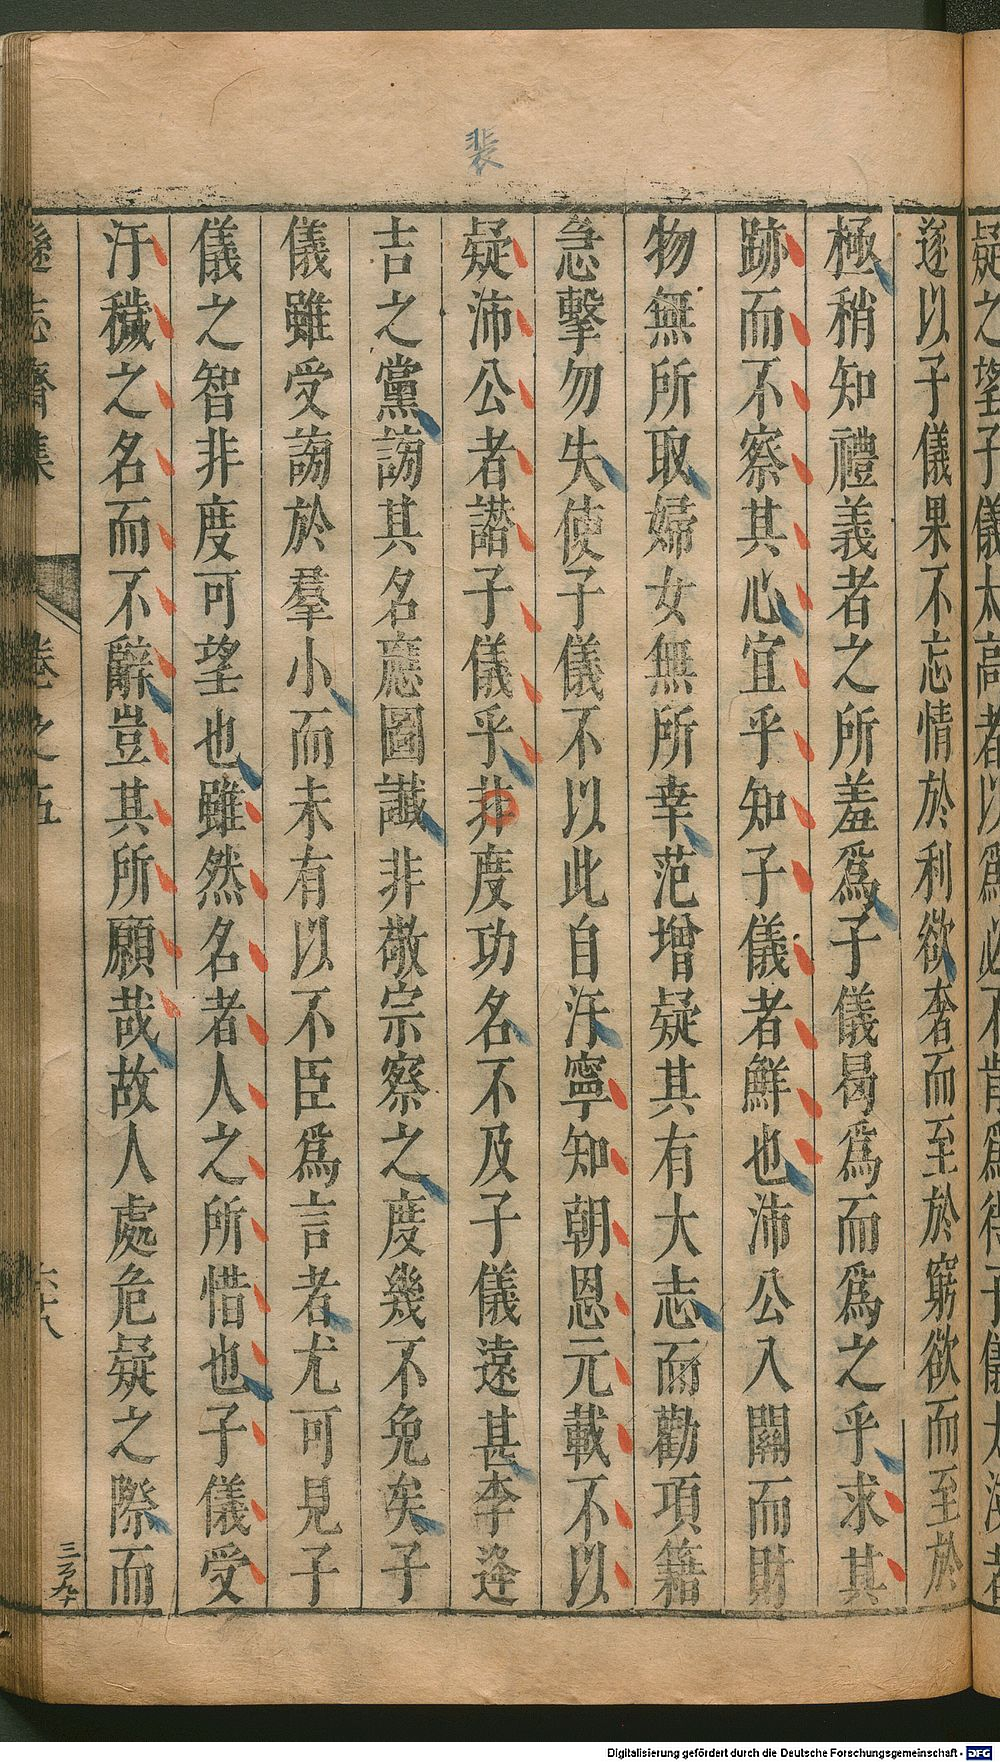 裴
疑之望子儀太高者以爲必不肯爲待子儀太淺者
遂以子儀果不忘情於利欲奢而至於窮欲而至於
極稍知禮義者之所羞爲子儀曷爲而爲之乎求其
跡而不察其心宜乎知子儀者鮮也沛公入關而財
物無所取婦女無所幸范增疑其有大志而勸項籍
急擊勿失使子儀不以此自汙寧知朝恩元載不以
疑沛公者譖子儀乎非度功名不及子儀遠甚李逢
吉之黨謗其名應圖讖非敬宗察之度幾不免矣子
儀雖受謗於羣小而未有以不臣爲言者尤可見子
儀之智非度可望也雖然名者人之所惜也子儀受
汙穢之名而不辭豈其所願哉故人處危疑之際而
遜志齋集 卷之五 六十八
Digitalisierung gefördert durch die Deutsche Forschungsgemeinschaft - DFG